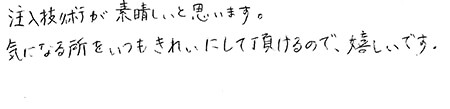 注入技術が素晴しいと思います。
気になる所をいつもきれいにして頂けるので、嬉しいです.